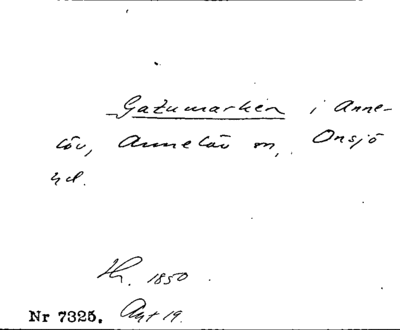 Gatumarken i Anne-
löv, Annelöv sn, Onsjö
hd.
Hr. 1850.
Nr 7325. Akt 19.